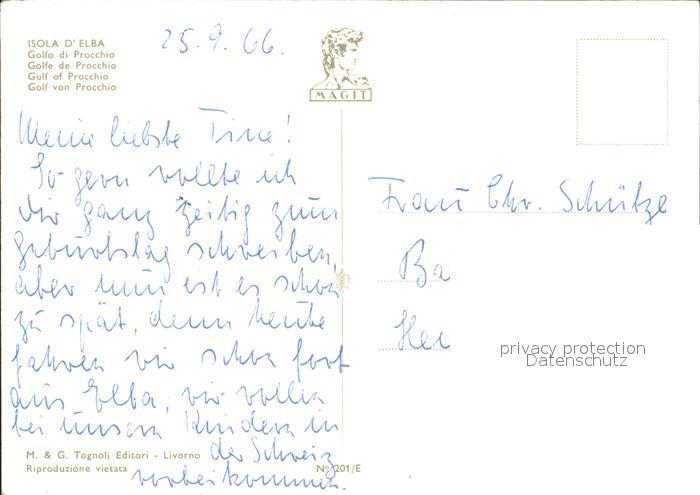 ISOLA D' ELBA
Golfo di Procchio
Golfe de Procchio
Gulf of Procchio
Golf von Procchio
25.9.66.
MAGIT
Meine liebste Tine!
So gern wollte ich
dir ganz zeitig zum
Geburtstag schreiben,
aber nun ist es schon
zu spät, denn heute
fahren wir schon fort
aus Elba, wir wollen
bei unsern Kindern in
der Schweiz
vorbeikommen.
Frau Chr. Schütze
Ba
Hei
privacy protection
Datenschutz
M. & G. Tognoli Editori - Livorno
Riproduzione vietata
No 201/E